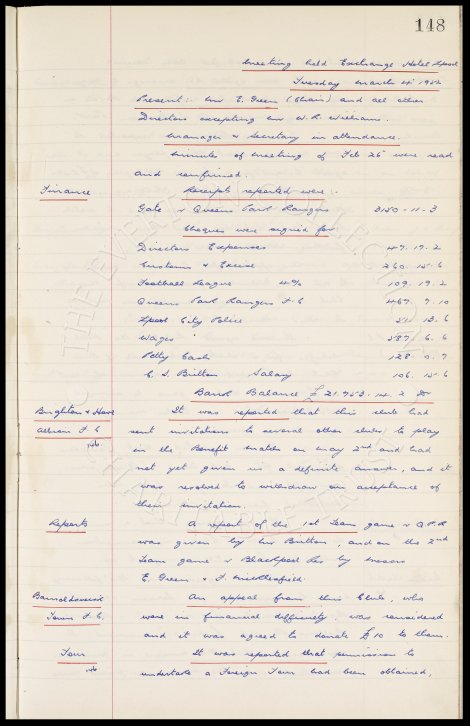 148
Meeting held Exchange Hotel L'pool
Tuesday March 4th 1952
Present:- Mr E. Green (Chair) and all other
Directors excepting Mr W. R. Williams.
Manager & Secretary in attendance.
Minutes of meeting of Feb 26th were read
and confirmed.
Finance
Receipts reported were:-
Gate v Queens Park Rangers 3150-11-3
Cheques were signed for
Directors Expenses 47.17.2
Customs & Excise 260.15.6
Football League 4% 109.19.2
Queens Park Rangers F.C 467.7.10
L'pool City Police 13.6
Wages 587.6.6
Petty Cash 128.0.7
C. S. Britton Salary 106.15.6
Bank Balance £21.753.14.2 Dr
Brighton & Hove
Albion F.C
It was reported that this club had
sent invitations to several other clubs to play
in the Benefit match on May 2nd and had
not yet given us a definite answer, and it
was resolved to withdraw our acceptance of
their invitation.
Reports
A report of the 1st Team game v Q.P.R
was given by Mr Britton, and on the 2nd
Team game v Blackpool Res by Messrs
E. Green & F. Micklesfield.
Barnoldswick
Town F.C.
An appeal from this Club, who
were in financial difficulty was considered
and it was agreed to donate £10 to them.
Tour
It was reported that permission to
undertake a Foreign Tour had been obtained,
THE EVERTON COLLECTION
CHARITABLE TRUST